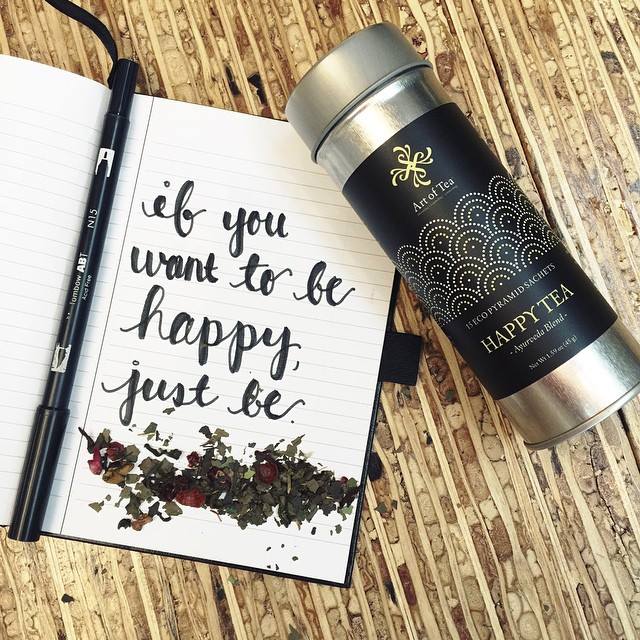 if you
want to be
happy,
just be.
Art of Tea
15 ECO PYRAMID SACHETS
HAPPY TEA
- Ayurveda Blend -
Net Wt. 1.59 oz (45 g)
N15
Tombow ABT
Acid Free